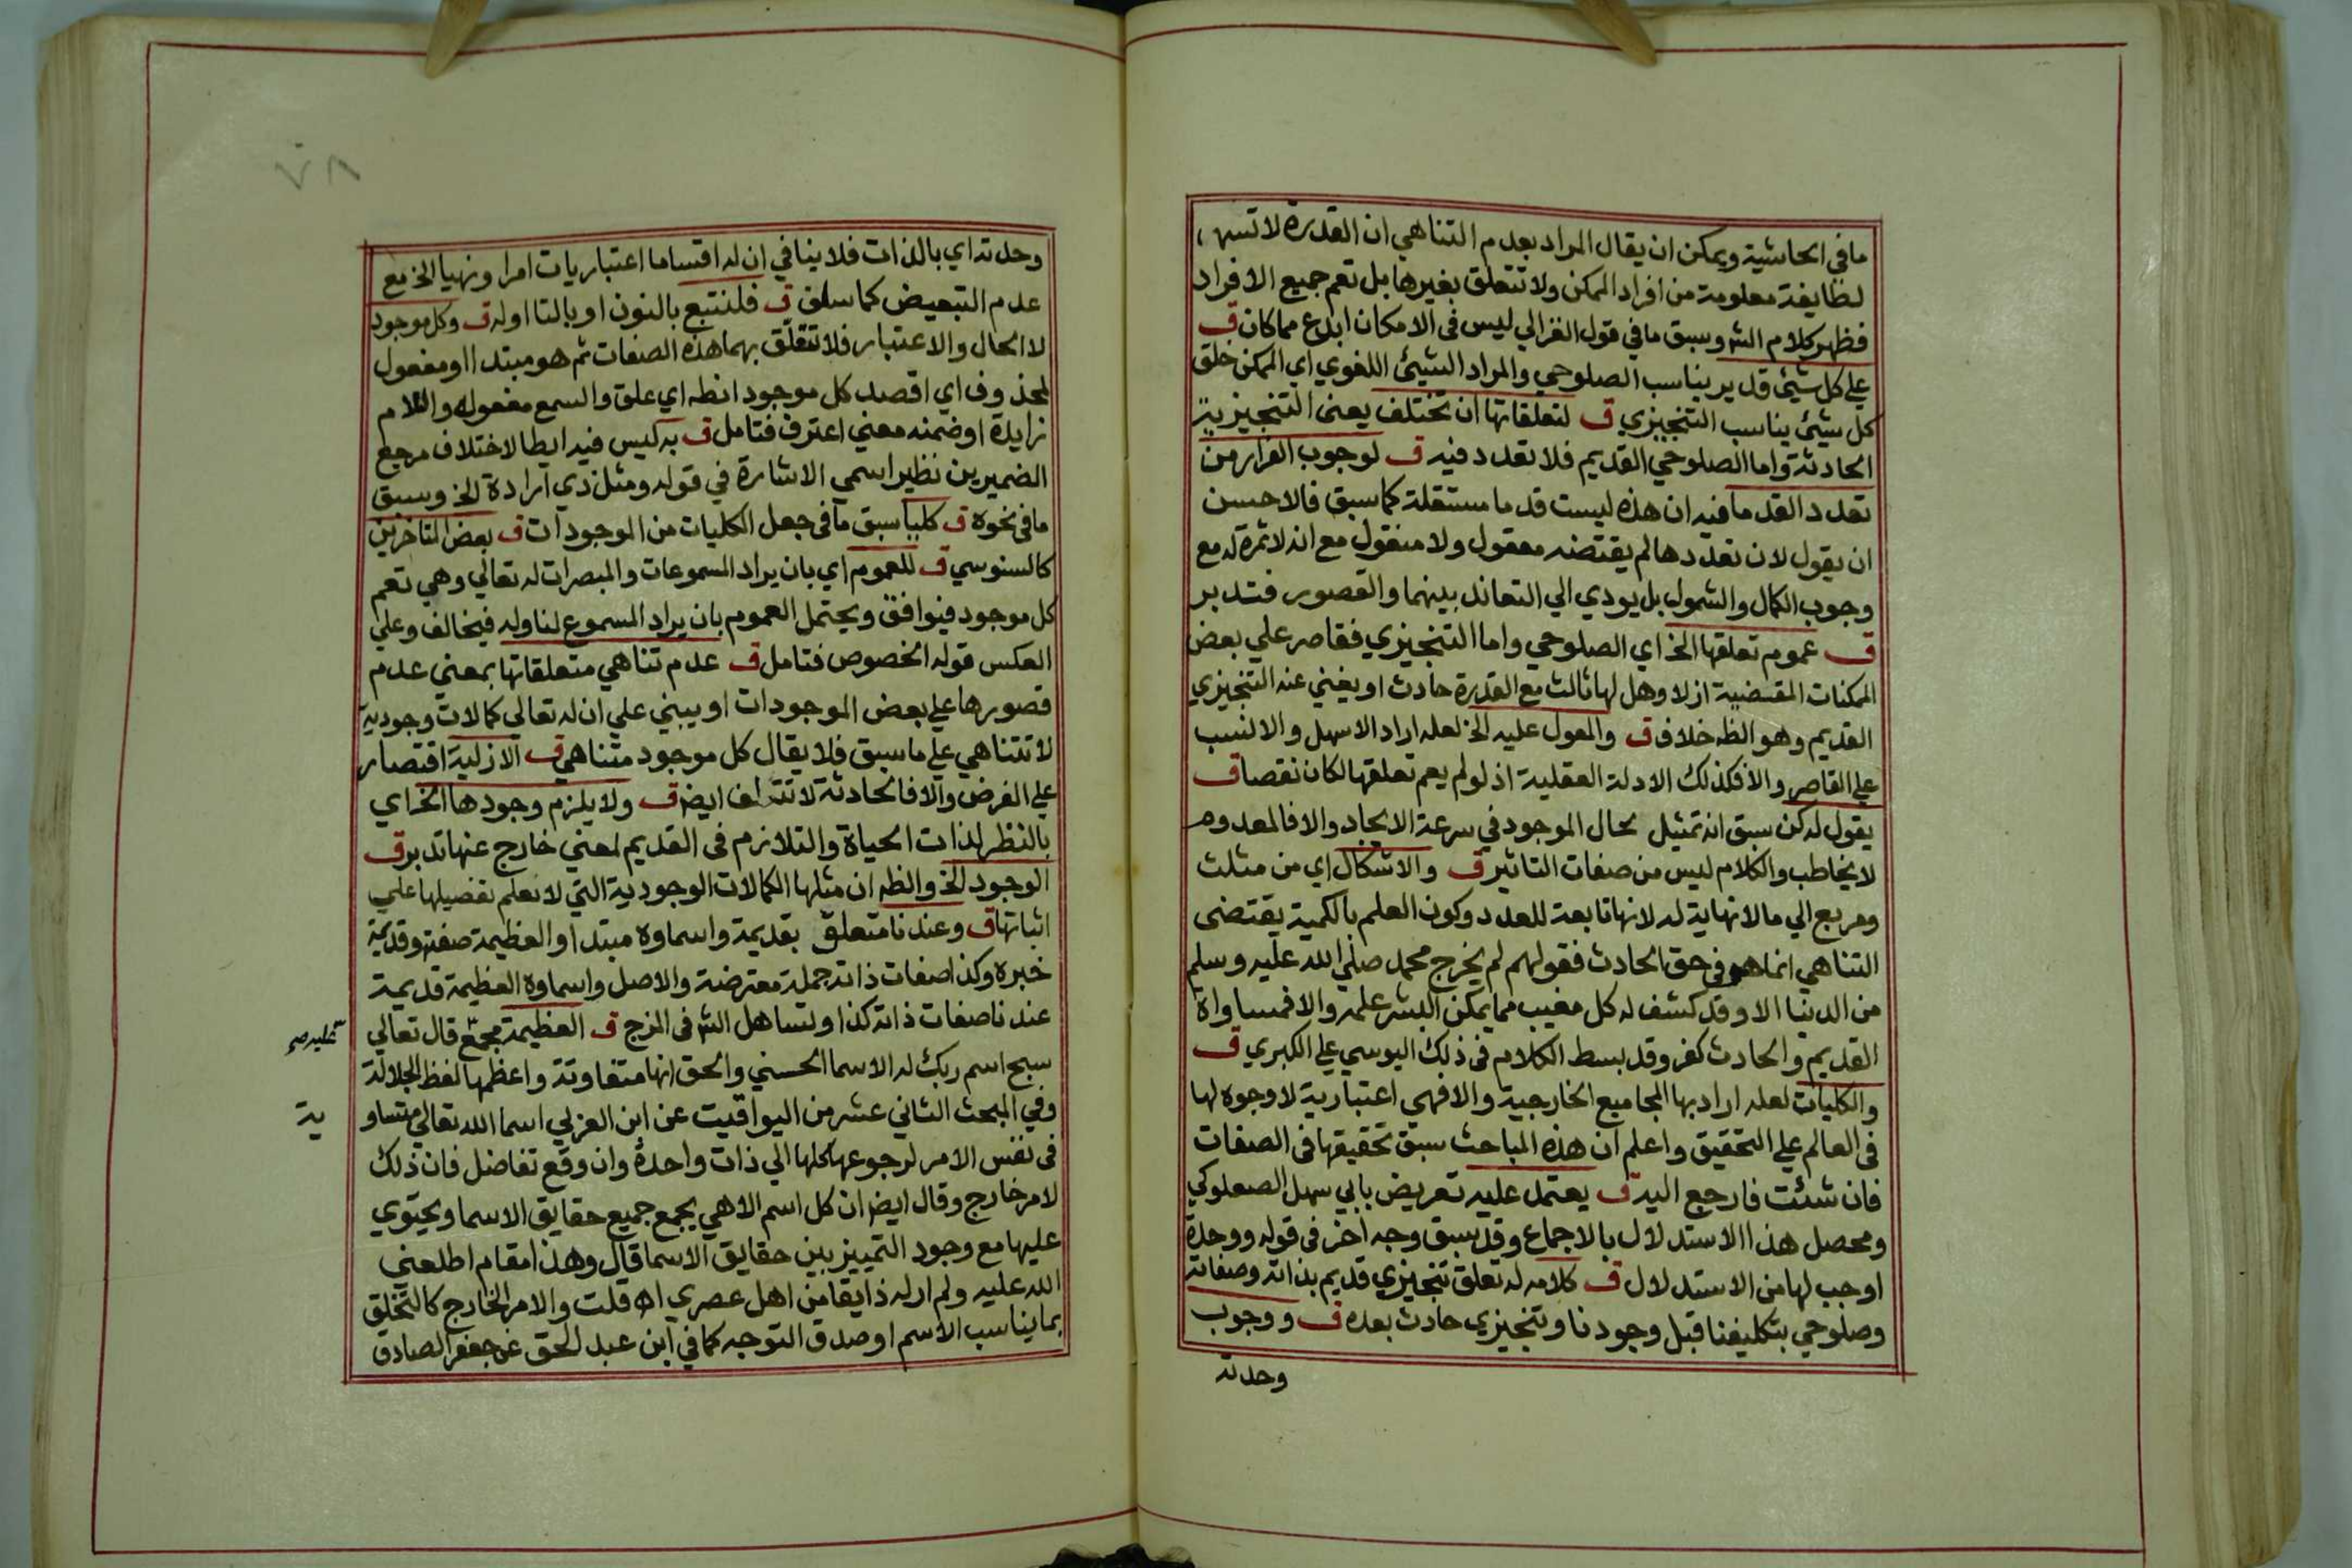 مافي الحاشية ويمكن ان يقال المراد بعدم التناهي ان القدرة لا تنتهي
لطايفة معلومة من افراد الممكن ولا تتعلق بغيرها بل تعم جميع الافراد
فظهر كلام الش وسبق ما في قول الغزالي ليس في الامكان ابدع مماكان ق
علي كل شيئ قدير يناسب الصلوحي والمراد الشيئ اللغوي اي الممكن خلق
كل شيئ يناسب التنجيزي ق لتعلقاتها ان تختلف يعني التنجيزية
الحادثة واما الصلوحي القديم فلا تعدد فيه ق لوجوب الفرار من
تعدد القدما فيه ان هذه ليست قدما مستقلة كما سبق فالاحسن
ان يقول لان تعددها لم يقتضه معقول ولا منقول مع انه لا ثمرة له مع
وجوب الكمال والشمول بل يودي الي التعاند بينهما والقصور فتدبر
ق عموم تعلقها الخ اي الصلوحي واما التنجيزي فقاصر علي بعض
الممكنات المقضية ازلا وهل لها ثالث مع القدرة حادث او يغني عنه التنجيزي
القديم وهو الظه خلاف ق والمعول عليه الخ لعله اراد الاسهل والانسب
علي القاصر والا فكذلك الادلة العقلية اذ لو لم يعم تعلقها لكان نقصا ق
يقول له كن سبق انه تمثيل لحال الموجود في سرعة الايجاد والا فالمعدوم
لا يخاطب والكلام ليس من صفات التاثير ق والاشكال اي من مثلث
ومربع الي مالا نهاية له لانها تابعة للعدد وكون العلم بالكمية يقتضي
التناهي انما هو في حق الحادث فقولهم لم يخرج محمد صلي الله عليه وسلم
من الدنيا الا وقد كشف له كل مغيب مما يمكن البشر علمه والا فمساواة
القديم والحادث كفر وقد بسط الكلام في ذلك اليوسي علي الكبري ق
والكليات لعله اراد بها المجاميع الخارجية والا فهي اعتبارية لا وجوه لها
في العالم علي التحقيق واعلم ان هذه المباحث سبق تحقيقها في الصفات
فان شئت فارجع اليه ق يعتمل عليه تعريض بابي سهل الصعلوكي
ومحصل هذا الاستدلال بالاجماع وقد سبق وجه اخر في قوله ووحدة
اوجب لها من الاستدلال ق كلامه له تعلق تنجيزي قديم بذاته وصفاته
وصلوحي بتكليفنا قبل وجودنا وتنجيزي حادث بعده ق ووجوب
وحدته
٧٨
وحدته اي بالذات فلا ينافي ان له اقتساما اعتباريات امرا ونهيا الخ مع
عدم التبعيض كما سلف ق فلنتبع بالنون او بالتا اوله ق وكل موجود
لا الحال والاعتبار فلا تتعلق بهما هذه الصفات ثم هو مبتدا او مفعول
لمحذوف اي اقصد كل موجود انطه اي علق والسمع مفعوله واللام
زايدة او ضمنه معني اعترف فتامل ق به كيس فيه ايطا لاختلاف مرجع
الضميرين نظير اسمي الاشارة في قوله ومثل ذي ارادة الخ وسبق
مافي نحوه ق كليا سبق ما في جعل الكليات من الموجودات ق بعض المتاخرين
كالسنوسي ق للعموم اي بان يراد المسموعات والمبصرات له تعالي وهي تعم
كل موجود فيوافق ويحتمل العموم بان يراد المسموع لنا وله فيخالف وعلي
العكس قوله الخصوص فتامل ق عدم تناهي متعلقاتها بمعني عدم
قصورها علي بعض الموجودات او يبني علي ان له تعالي كمالات وجودية
لا تتناهي علي ما سبق فلا يقال كل موجود متناهي ق الازلية اقتصار
علي الغرض والا فالحادثة لا تتخلف ايض ق ولا يلزم وجودها الخ اي
بالنظر لذات الحياة والتلازم في القديم لمعني خارج عنها تدبر ق
الوجود الخ والظه ان مثلها الكمالات الوجودية التي لا نعلم تفصيلها علي
اثباتها ق وعندنا متعلق بقديمة واسماوه مبتدا والعظيمة صفة وقديمة
خبره وكذا صفات ذاته جملة معترضة والاصل واسماوه العظيمة قديمة
عندنا صفات ذاته كذا وتساهل الش في المزج ق العظيمة مجمع قال تعالي
عليه صح
سبح اسم ربك له الاسما الحسني والحق انها متفاوتة واعظمها لفظ الجلالة
وفي المبحث الثاني عشر من اليواقيت عن ابن العربي اسما الله تعالي متساو
ية
في نفس الامر لرجوعها كلها الي ذات واحدة وان وقع تفاضل فان ذلك
لامر خارج وقال ايض ان كل اسم الاهي يجمع جميع حقايق الاسما ويحتوي
عليها مع وجود التمييز بين حقايق الاسما قال وهذا مقام اطلعني
الله عليه ولم ار له ذايقا من اهل عصري اه قلت والامر الخارج كالتخلق
بما يناسب الاسم او صدق التوجه كما في ابن عبد الحق عن جعفر الصادق